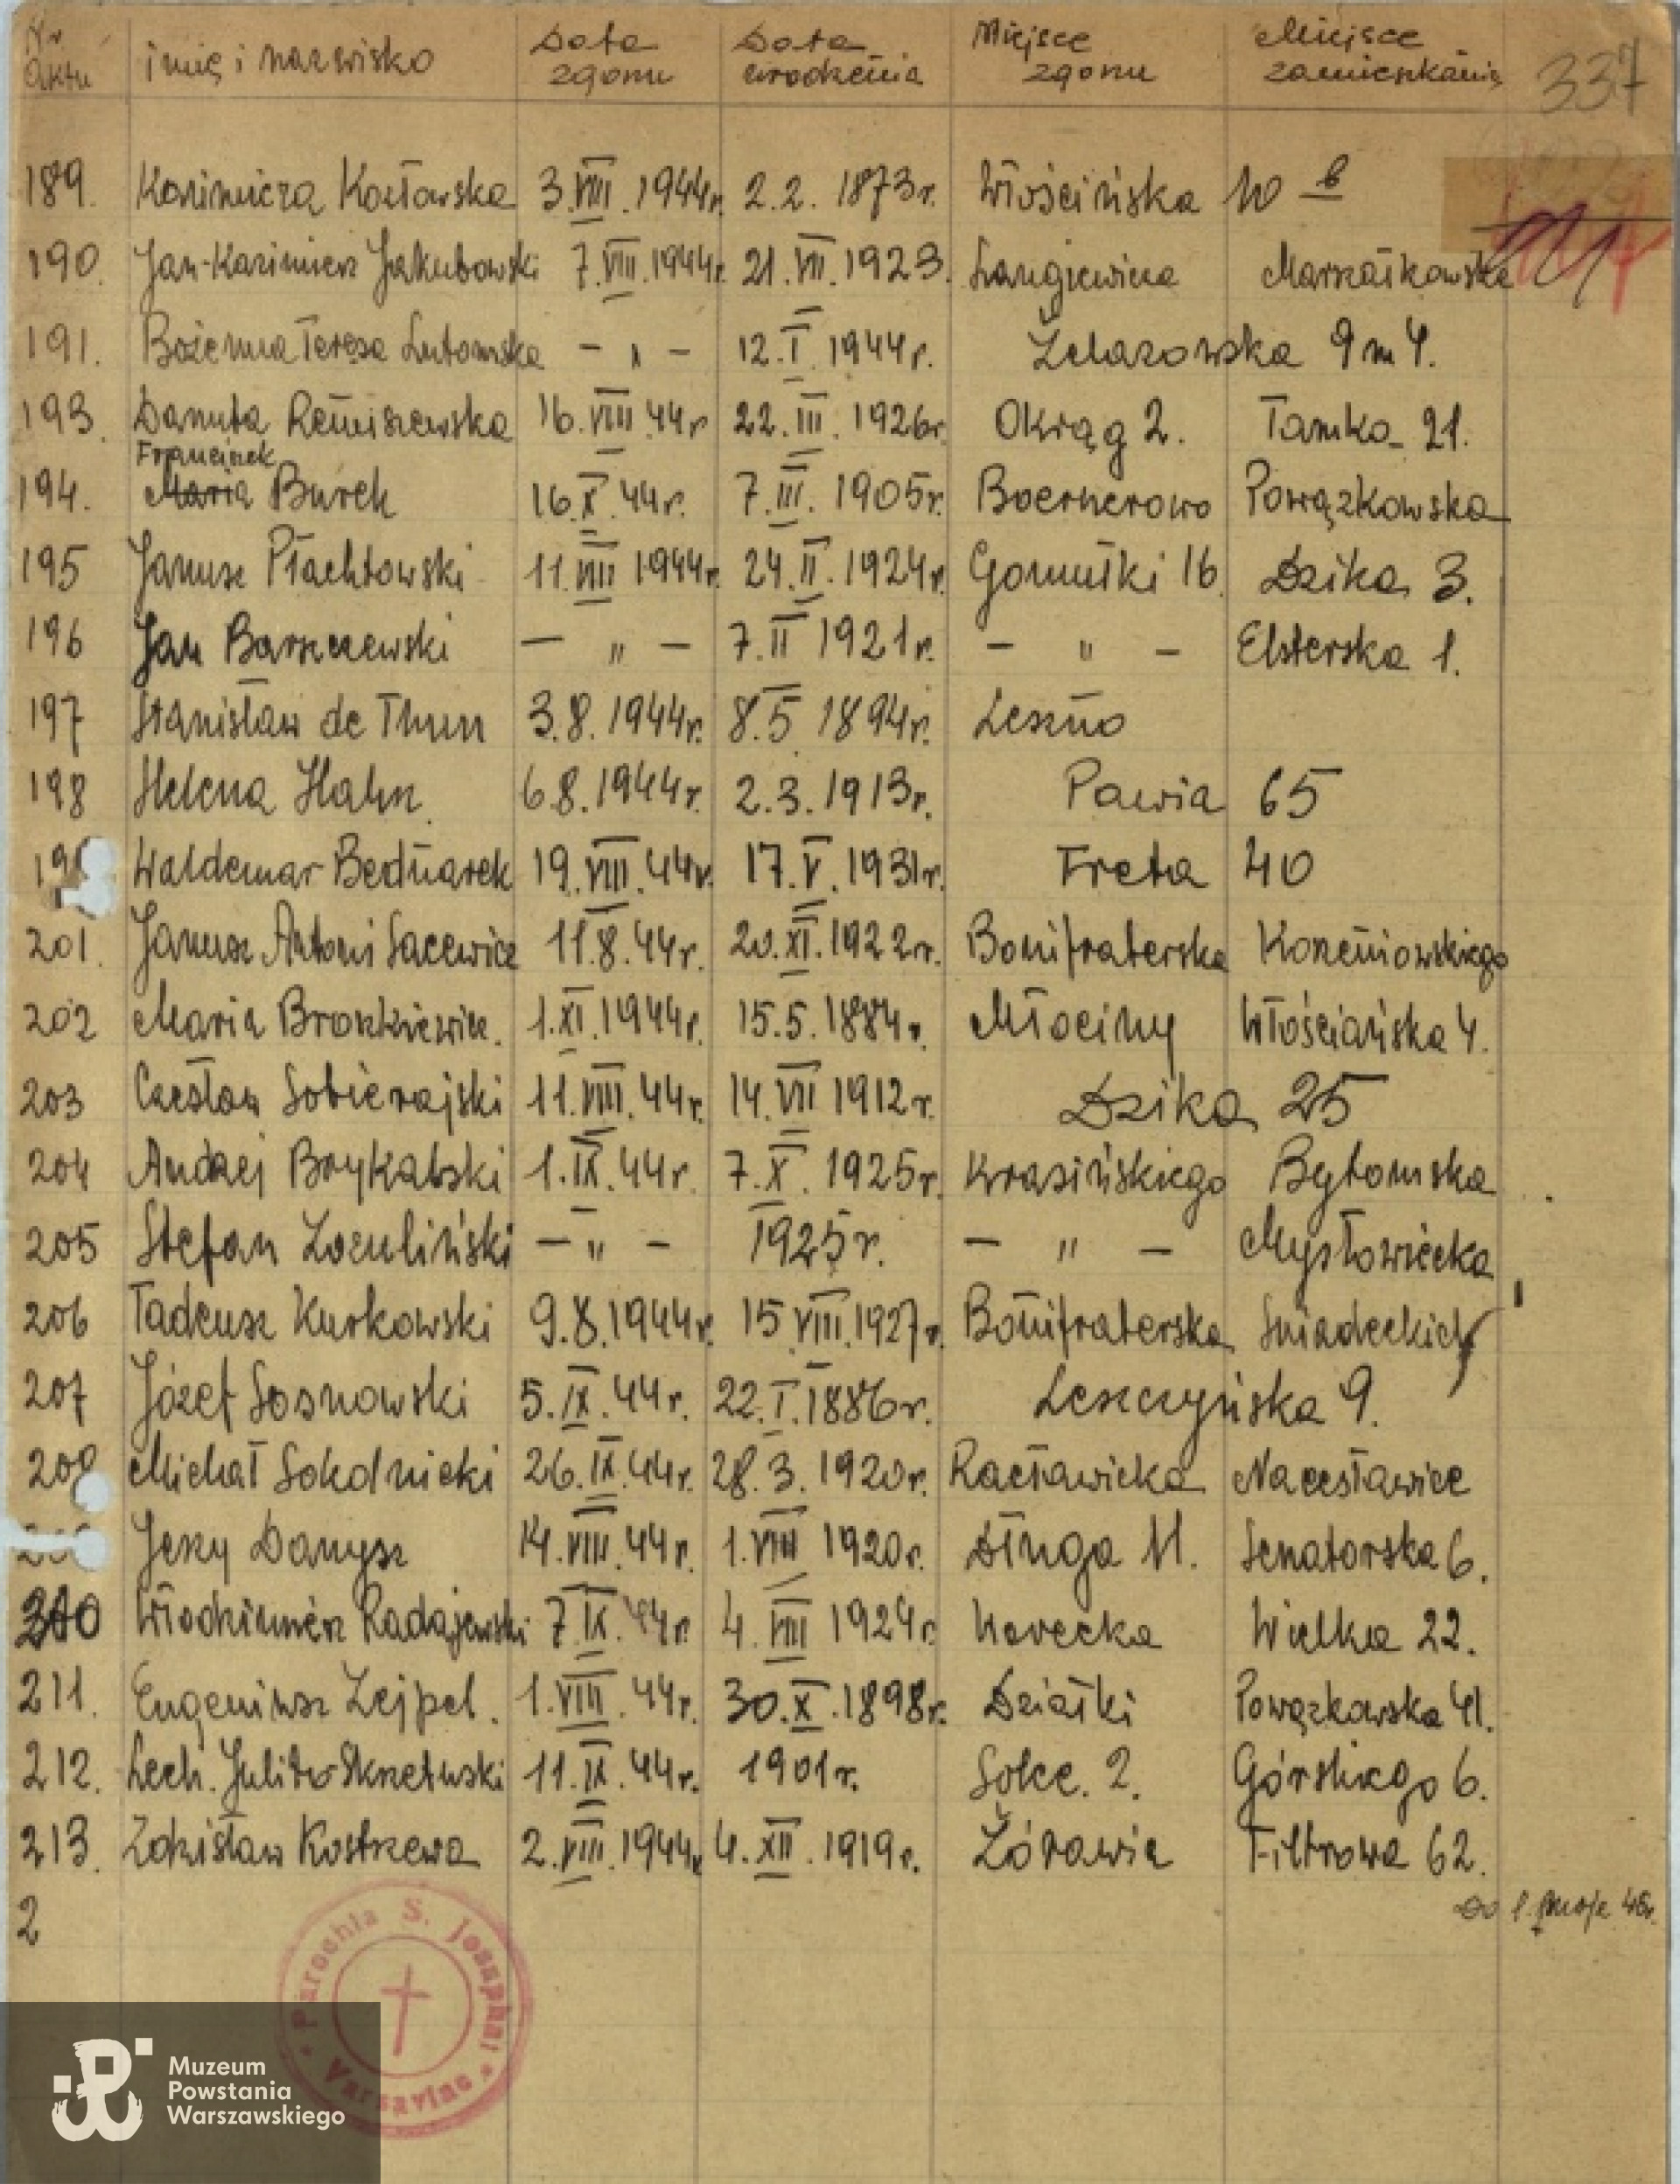 Nr Aktu imię i nazwisko Data zgonu Data urodzenia Miejsce zgonu Miejsce zamieszkania 337
189. Kazimiera Kozłowska 3.VIII.1944r. 2.2. 1873r. Włościńska 10 b
190. Jan-Kazimierz Jakubowski 7.VIII.1944r. 21.VII.1923. Langiewicza Marszałkowska
191. Bożenna Teresa Lutomska - „ - 12.I.1944r. Żelazowska 9 m 4.
193. Danuta Remiszewska 16.VIII.44r 22.III.1926r. Okrąg 2. Tamka 21.
Franciszek
194. Maria Burek 16.X.44r. 7.III.1905r. Boernerowo Powązkowska
195 Janusz Płachtowski 11.VIII 1944r. 24.II.1924r. Gomułki 16 Dzika 3.
196 Jan Barszczewski - „ - 7.II 1921r. - „ - Elsterska 1.
197 Stanisław de Thun 3.8.1944r. 8.5 1894r. Leszno
198 Helena Hahn 6.8.1944r. 2.3.1913r. Pawia 65
Waldemar Bednarek 19.VIII.44r. 17.V.1931r. Freta 40
201. Janusz Antoni Sacewicz 11.8.44r. 20.XI.1922r. Bonifraterska Korzeniowskiego
202 Maria Bronkiewicz. 1.XI.1944r. 15.5.1884r. Młociny Włościańska 4.
203 Czesław Sobierajski 11.VIII.44r. 14.VII 1912r. Dzika 25
204 Andrzej Brykalski 1.IX.44r. 7.X.1925r. Krasińskiego Bytomska
205 Stefan Loculiński - „ - 1925r. - „ - Mysłowicka
206 Tadeusz Kurkowski 9.8.1944r. 15 VIII.1927r. Bonifraterska Śniadeckich
207 Józef Sosnowski 5.IX.44r. 22.I.1886r. Leszczyńska 9.
208 Michał Sokolnicki 26.IX.44r. 28.3.1920r. Racławicka Nacesławice
Jerzy Danysz 14.VIII.44r. 1.VIII 1920r. Długa 11. Senatorska 6.
210 Włodzimierz Radajewski 7.IX.44r. 4.VIII 1924r. Norecka Wielka 22.
211. Eugeniusz Lejpel. 1.VIII.44r. 30.X.1898r. Działki Powązkowska 41.
212. Lech. Julito-Skrzetuski 11.IX.44r. 1901r. Solec. 2. Górskiego 6.
213. Zdzisław Kostrzewa 2.VIII.1944r 4.XII.1919r. Żórawia Filtrowa 62.
2 Do 1. maja 46r.
Parochia S. Josaphat Varsaviae
Muzeum
Powstania
Warszawskiego